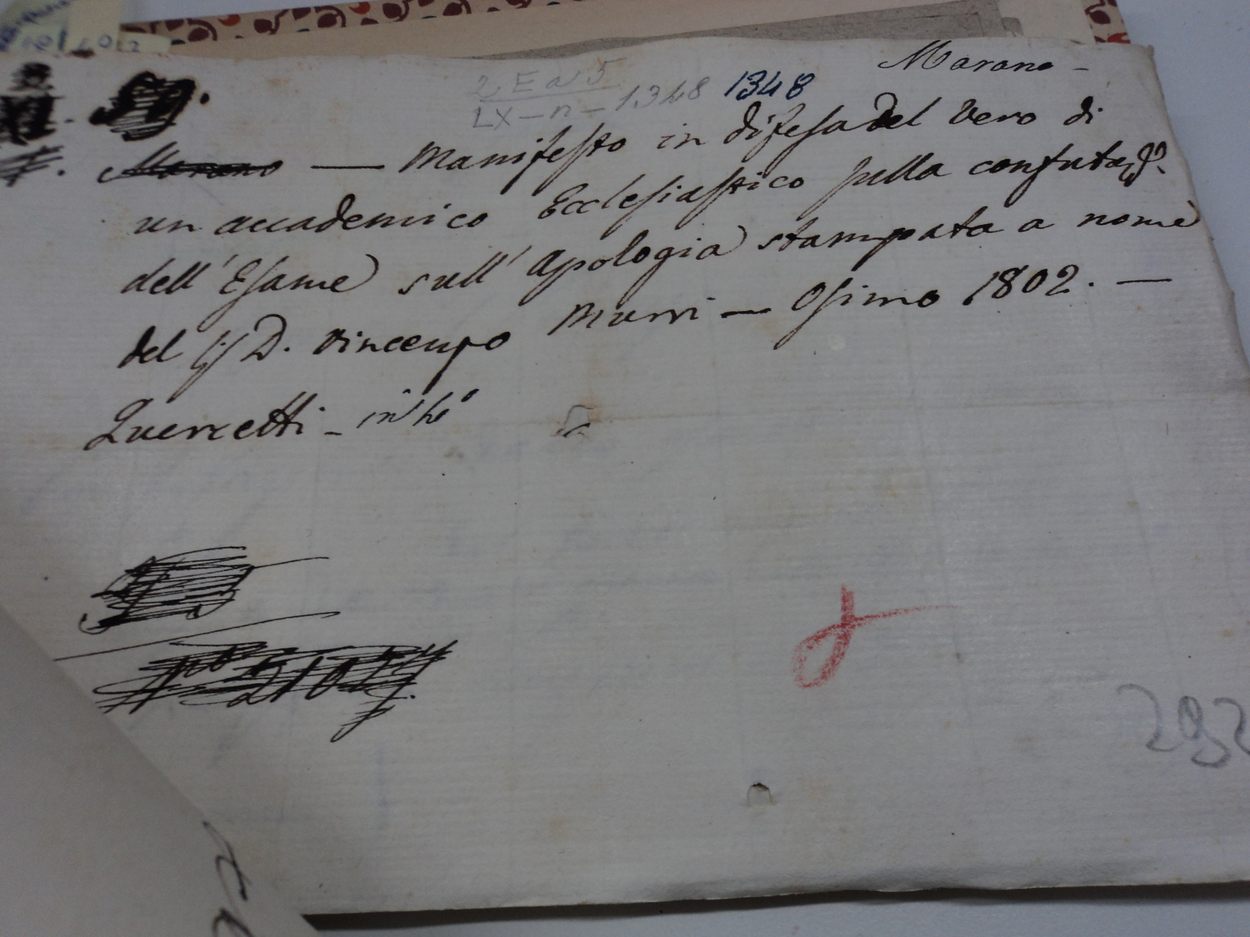 Marano -
2 E a 5
LX - n - 1348 1348
Marano — Manifesto in difesa del Vero di
un accademico Ecclesiastico sulla confutaz.e
dell' Esame sull' Apologia stampata a nome
del Sig D. Vincenzo Murri — Osimo 1802. —
Quercetti - in
292